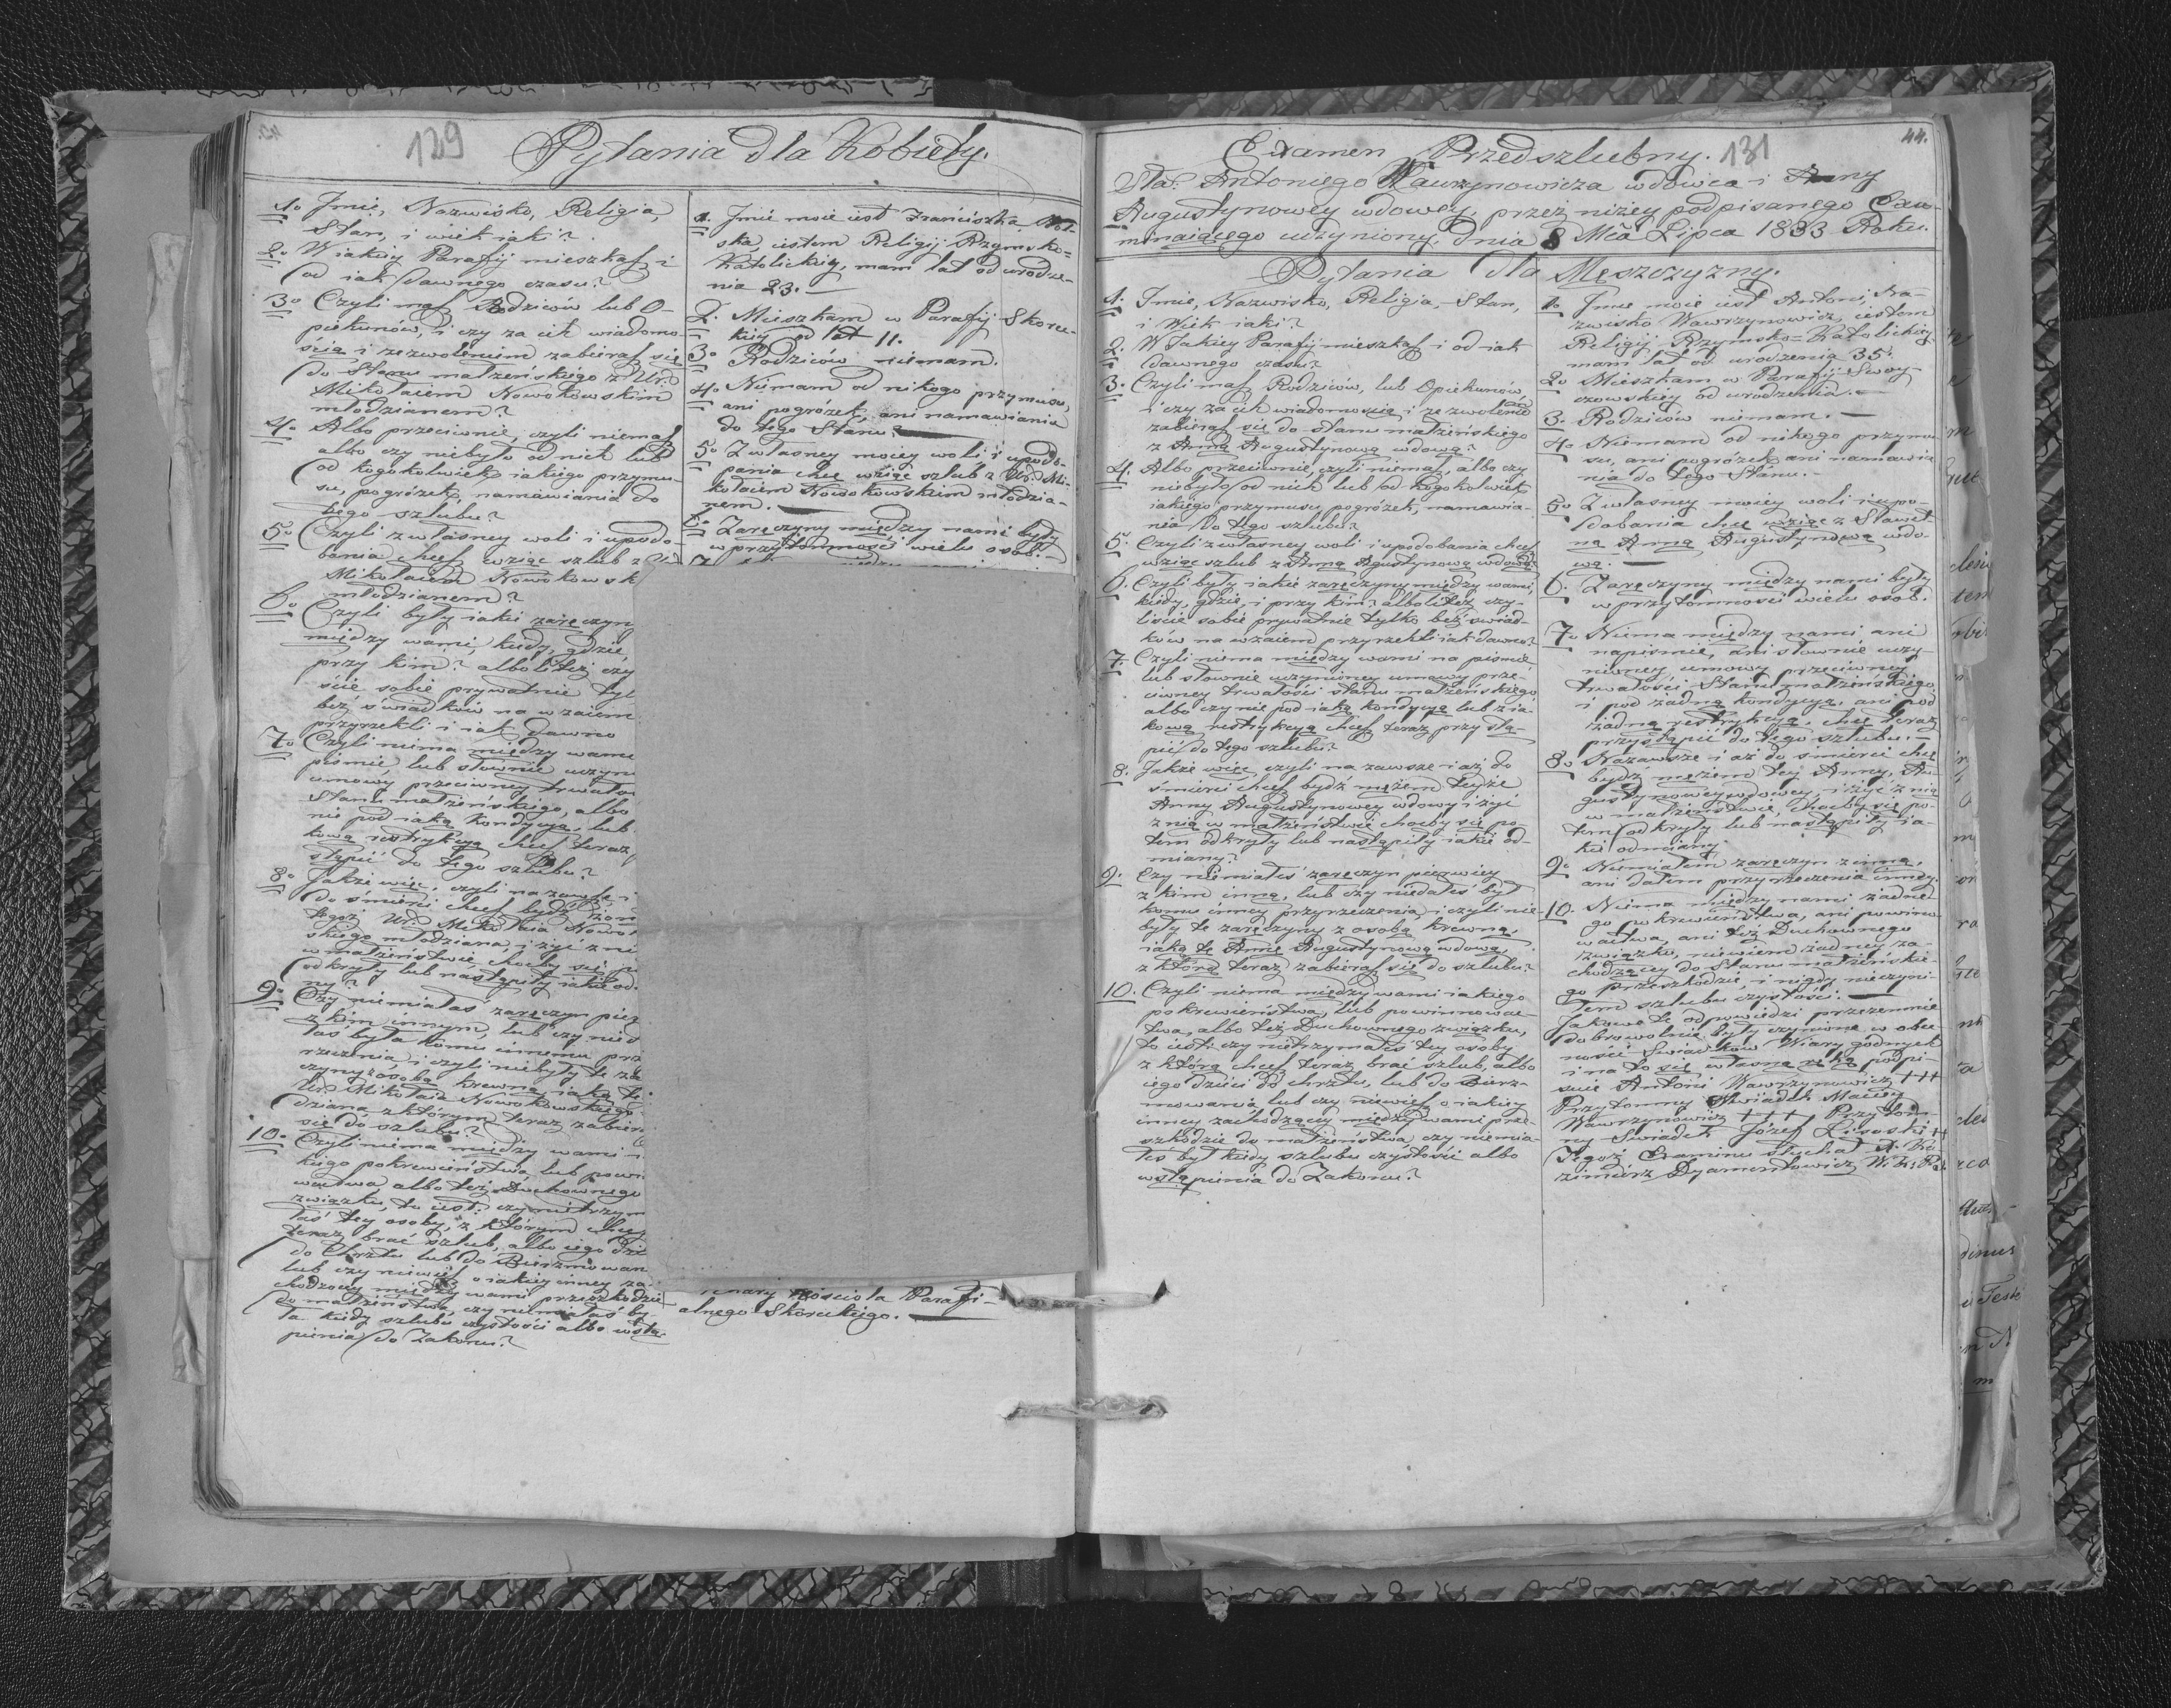 129
Pytania dla Kobiety.
1o Jmie, Nazwisko, Religia,
Stan, i wiek iaki?
2o W iakiey Parafij mieszkasz i
od iak dawnego czasu?
3o Czyli masz Rodziców lub O-
piekunów, i czy za ich wiadomo-
ścią i zezwoleniem zabierasz się
do Stanu małżeńskiego z Ur.
Mikołaiem Nowokowskim
młodzianem?
4o Albo przeciwnie, czyli niemasz
albo czy niebyło od nich lub
od kogokolwiek iakiego przymu-
su, pogróżek, namawiania do
tego szlubu?
5o Czyli z własney woli i upodo-
bania chcesz wziąc szlub z
Mikołaiem Nowokowsk
młodzianem?
6o Czyli były iakie zaręczyn
między wami, kiedy, gdzie
przy kim? albo liteż czy
ście sobie prywatnie tyl
beż świadków na wzaiem
przyrzekli i iak dawno
7o Czyli niema między wami
piśmie lub słownie uczyn
umowy przeciwney trwałoś
Stanu małżeńskiego, albo
nie pod iaką kondycyą, lub
kową restrykcyą chcesz teraz
stąpić do tego szlubu?
8o Jakże więc, czyli na zawsze i
do śmierci chcesz bydź żon
tegoż Ur. Mikołaia Nowok
skiego młodziana, i żyć z ni
w małżeństwie choćby się p
odkryły lub nastąpiły iakie od
ny?
9o Czy niemiałaś zaręczyn pier
z kim innym, lub czy nied
łaś była komu innemu prz
rzeczenia, i czyli niebyły te za
czyny z osobą krewną iaką te
Ur. Mikołaia Nowokowskiego
dziana z którym teraz zabier
się do szlubu?
10o Czyli niema między wami i
kiego pokrewieństwa lub powi
wactwa, albo też Duchownego
związku, to iest: czy nietrzym
łaś tey osoby, z którym chcesz
teraz brać szlub, albo iego dzie
do Chrztu lub do Bierzmowan
lub czy niewiesz o iakiey inney za-
chodzącey między wami przeszkodzie
do małżeństwa, czy niemiałaś by-
ła kiedy szlubu czystości albo wstą-
pienia do Zakonu?
1. Jmie moie iest Franciszka Wol-
ska, iestem Religij Rzymsko=
Katolickiey, mam lat od urodze-
nia 23.
2. Mieszkam w Parafij Skorec-
kiey od lat 11.
3o Rodziców niemam.
4o Niemam od nikogo przymusu,
ani pogróżek, ani namawiania
do tego Stanu.
5o Z własney mocey woli i upodo-
bania chcę wziąć szlub z Ur. Mi-
kołaiem Nowokowskim młodzia-
nem.
6o Zaręczyny między nami były
w przytomności wielu osob.
Kościoła Parafi-
alnego Skoreckiego.
44.
131
Examen Przedszlubny.
Sła. Antoniego Wawrzynowicza wdowca i Anny
Augustynowey wdowey, przeż niżey podpisanego Exa-
minaiącego uczyniony, Dnia 8 Mca Lipca 1833 Roku.
Pytania dla Męszczyzny.
1. Jmie, Nazwisko, Religia, Stan,
i Wiek iaki?
2. W Jakiey Parafij mieszkasz i od iak
dawnego czasu?
3. Czyli masz Rodziców, lub Opiekunów,
i czy za ich wiadomoscią i ze zwoleniem
zabierasz się do stanu małżeńskiego
z Anną Augustynową wdową?
4. Albo przeciwnie, czyli niemasz, albo czy
niebył od nich lub od kogokolwiek
iakiego przymusu, pogróżek, namawia-
nia do tego szlubu?
5. Czyli z własney woli i upodobania chcesz
wziąc szlub z Anną Agustynową wdową?
6. Czyli były iakie zaręczyny między wami,
kiedy, gdzie, i przy kim? albo liteż czy-
liście sobie prywatnie tylko beż świad-
ków na wzaiem przyrzekli iak dawno?
7. Czyli niema między wami na piśmie,
lub słownie uczynioney umowy prze-
ciwney trwałości stanu małżeńskiego
albo czy nie pod iaką kondycyą lub z ia-
kową restrykcyą chcesz teraz przy stą-
pić do tego szlubu?
8. Jakże więc czyli na zawsze i aż do
śmierci chcesz bydź mężem teyże
Anny Augustynowey wdowy i żyć
z nią w małżeństwie choćby się po-
tem odkryły lub nastąpiły iakie od-
miany?
9. Czy niemiałeś zaręczyn pierwiey
z kim inną, lub czy niedałeś był
komu inney przyrzeczenia, i czyli nie-
były te zaręczyny z osobą krewną,
iaką tę Annę Augustynową wdową,
z którą teraz zabierasz się do szlubu?
10. Czyli niema między wami iakiego
pokrewieństwa, lub powinnowac-
twa, albo też Duchownego związku,
to iest: czy nietrzymałeś tey osoby
z którą chcesz teraz brać szlub, albo
iego dzieci do chrztu, lub do Bierz-
mowania lub czy niewiesz o iakiey
inney zachodzącey między wami prze-
szkodzie do małżeństwa, czy niemia-
łeś był kiedy szlubu czystości albo
wstąpienia do Zakonu?
1o Jmie moie iest Antoni, Na-
zwisko Wawrzynowicz, iestem
Religij Rzymsko=Katolickiey
mam lat od urodzenia 35.
2o Mieszkam w Parafij Swoy-
czowskiey od urodzenia.
3. Rodziców niemam.
4o Niemam od nikogo przymu-
su, ani pogróżek ani namawia-
nia do tego Stanu.
5o Z własney moiey woli i upo-
dobania chcę wziąc z Sławet-
ną Anną Augustynową wdo-
wą.
6. Zaręczyny między nami były
w przytomności wielu osob.
7o Niema między nami ani
napiśmie, ani słownie uczy-
nioney umowy przeciwney
trwałości Stanu małżeńskiego
i pod żadną kondycyą, ani pod
żadną restrykcyą, chcę teraz
przystąpić do tego szlubu.
8o Nazawsze i aż do śmierci chcę
bydz mężem tey Anny, Au-
gustynowey wdowey, i żyć z nią
w małżeństwie, choćby się po-
tem odkryły lub nastąpiły ia-
kie odmiany.
9o Niemiałem zaręczyn z inną,
ani dałem przyrzeczenia inney.
10. Niema między nami żadne-
go pokrewieństwa, ani powino-
wactwa, ani też Duchownego
związku, niewiem żadney za-
chodzącey do Stanu małżeńskie-
go przeszkodzie, i nigdy nieczyni-
łem szlubu czystości.
Jakowe te odpowiedzi przezemnie
dobrowolnie były czynione w obec-
ności Swiadków Wiary godnych
i na to się własną ręką podpi-
suię Antoni Wawrzynowicz +++
Przytomny Swiadek Maciey
Wawrzynowicz +++ Przytom-
ny Swiadek Józef Lisoski ++
Tegoż Examinu słuchał X. Ka-
zimierz Dyamentowicz